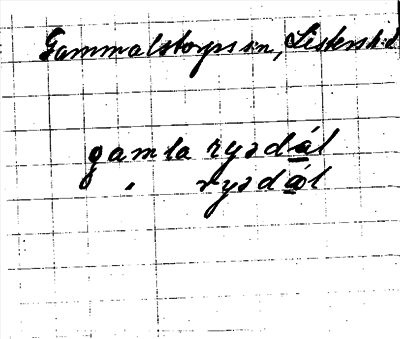 Gammalstorps sn, Listers hd
gamla ryədál
" ryədál